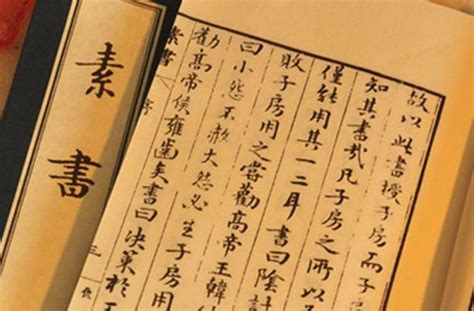 故以此書授子房而子
知其書哉凡子房之所以
僅能用其一二耳書曰陰計
敗子房用之嘗勸高帝王韓信
曰小怨不赦大怨必生子房用
勸高帝侯雍齒矣書曰決策於
素書 序 三
素書